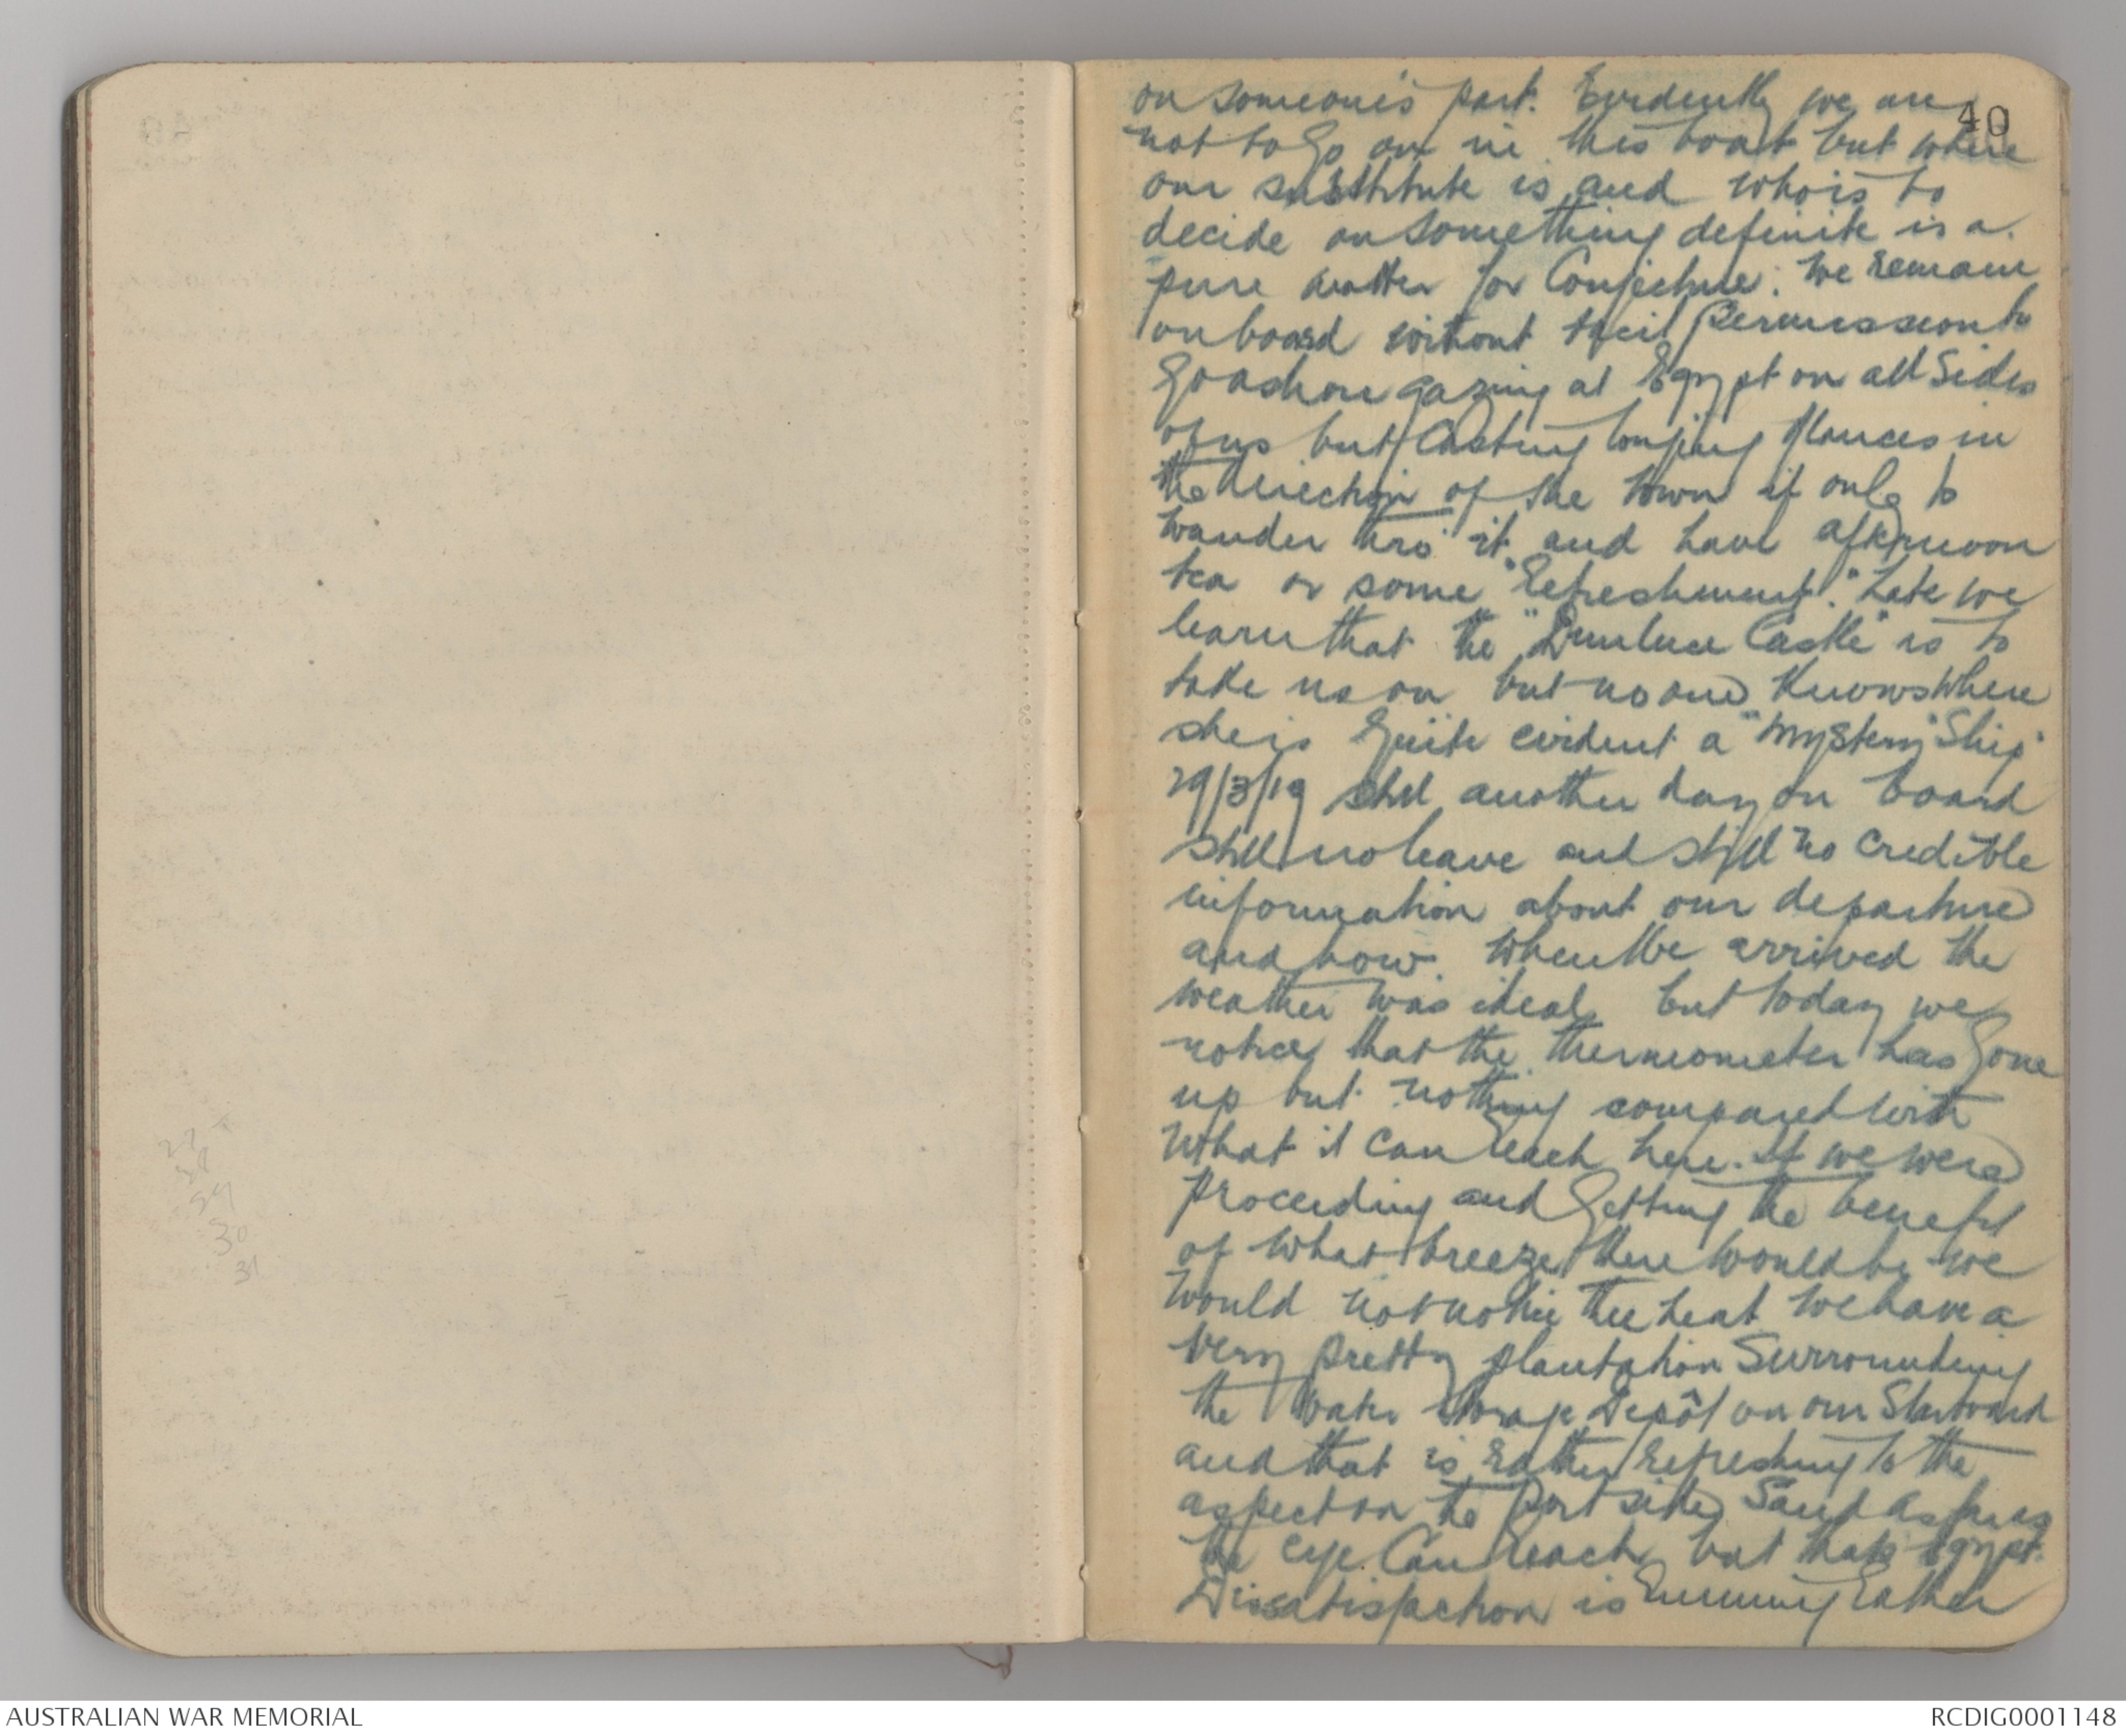 27
28
29
30
31
40
on someone's part. Evidently we are
not to go on in this boat but where
our substitute is and who is to
decide on something definite is a
pure matter for Conjecture. We remain
on board without their permission to
go ashore gazing at Egypt on all sides
of us but casting longing glances in
the direction of the town if only to
wander thro' it and have afternoon
tea or some "refreshment." Late we
learn that the "Dunluce Castle" is to
take us on but no one knows where
she is quite evident a "mystery" ship
29/3/19 Still another day on board
still no leave and still no credible
information about our departure
and how. When we arrived the
weather was ideal but today we
notice that the thermometer has gone
up but nothing compared with
what it can reach here. If we were
proceeding and getting the benefit
of what breeze there would be we
would not notice the heat We have a
very pretty plantation surrounding
the water storage Depôt on our Starboard
and that is rather refreshing to the
aspect on the port side Sand as far as
the eye can reach but thats Egypt.
Dissatisfaction is running rather
AUSTRALIAN WAR MEMORIAL
RCDIG0001148